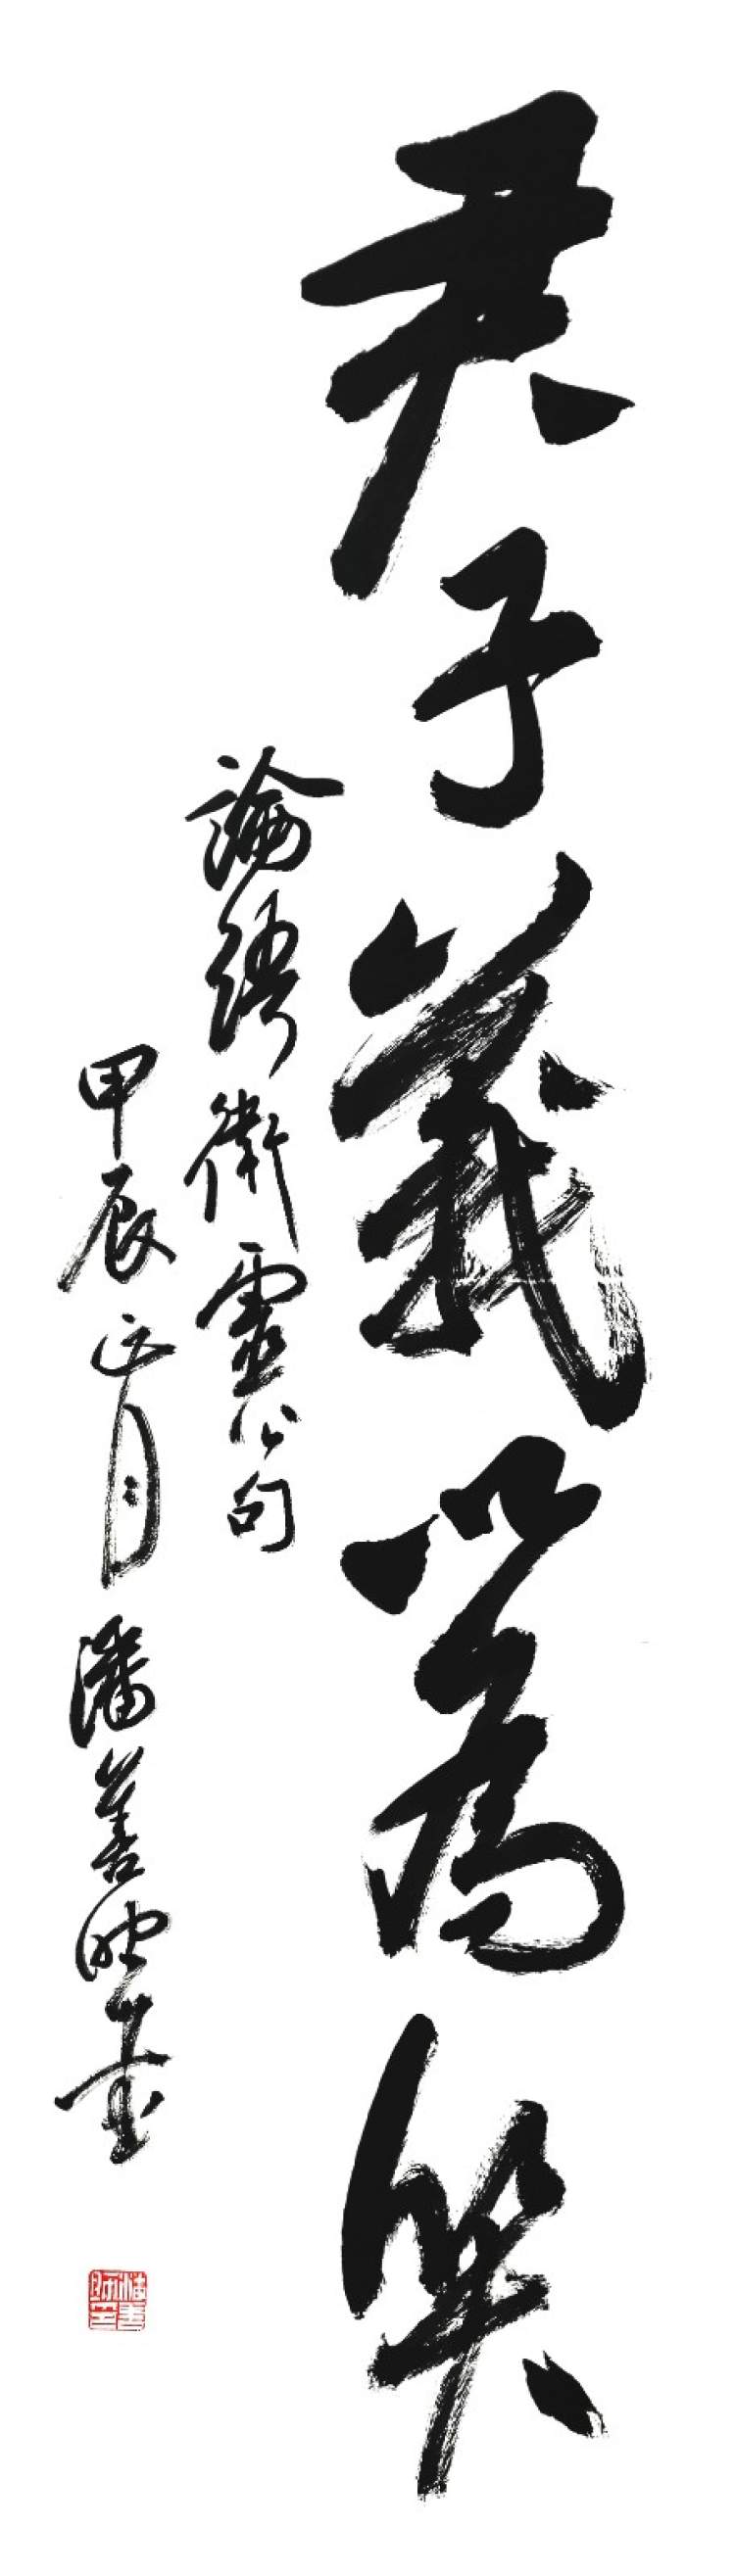 君子義以為質
論語衛靈公句
甲辰正月潘善助書